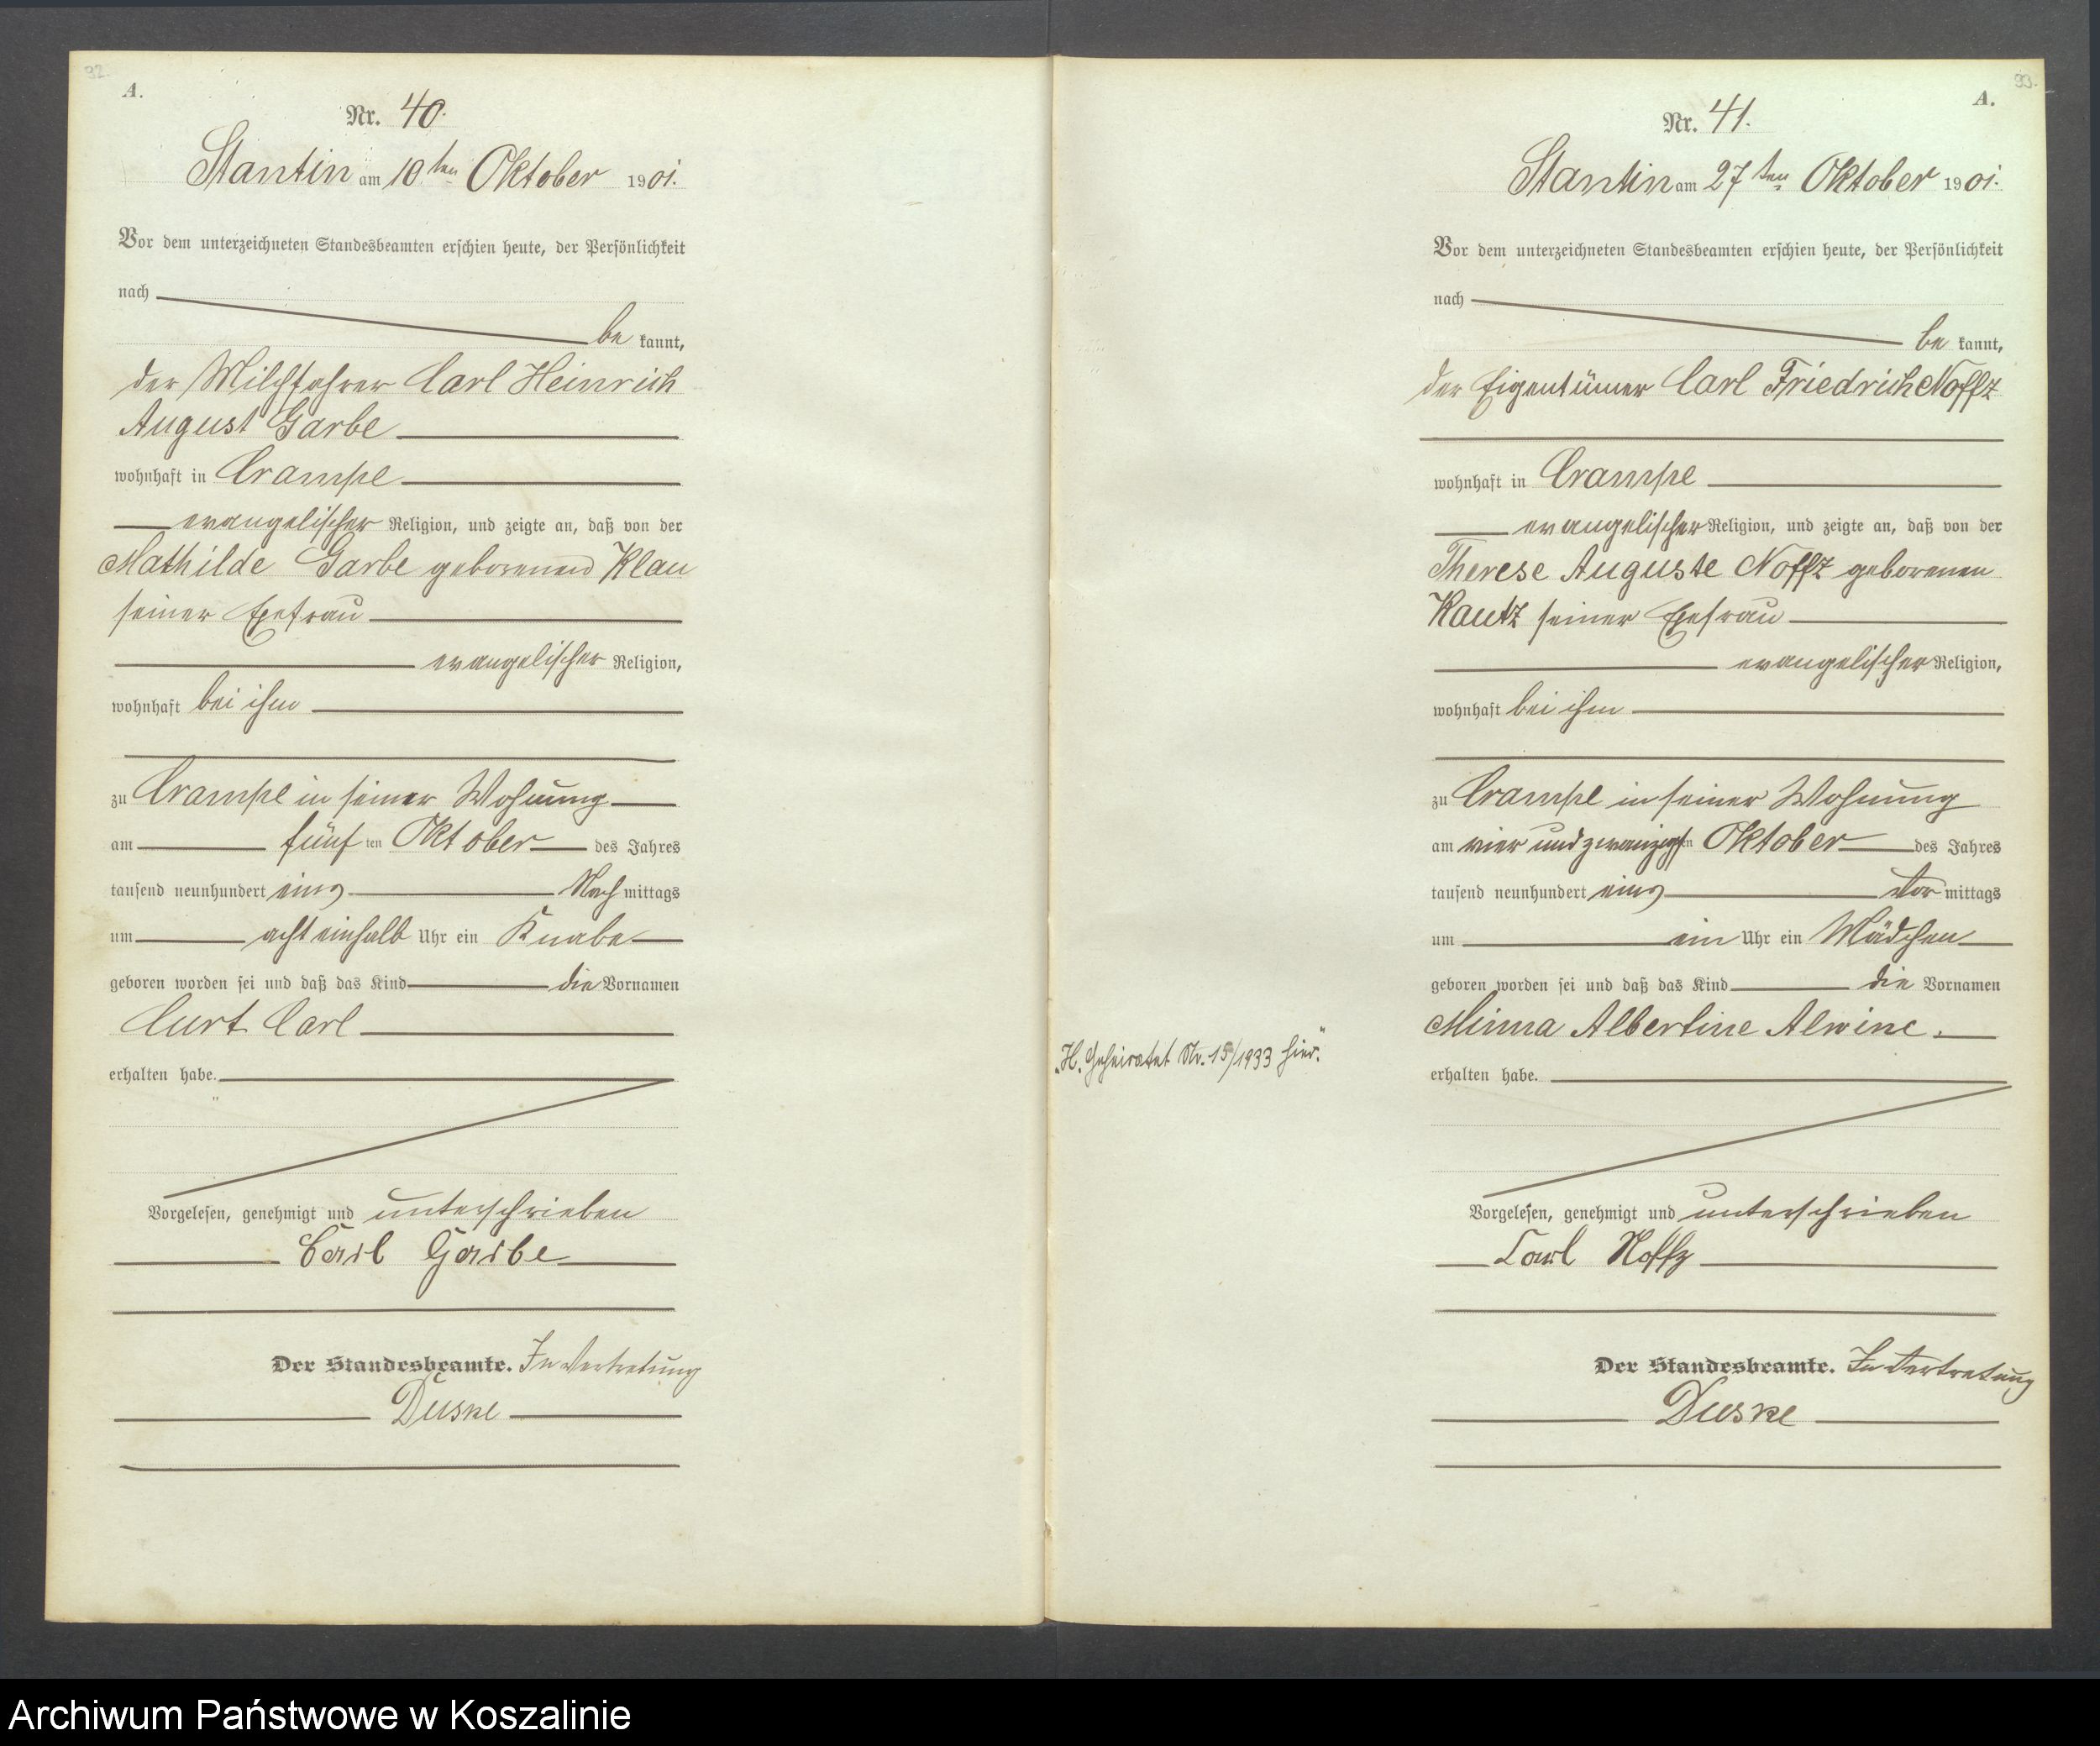 92.
A.
Nr. 40.
Stantin am 10ten Oktober 1901.
Vor dem unterzeichneten Standesbeamten erschien heute, der Persönlichkeit
nach
be kannt,
der Milchfahrer Carl Heinrich
August Garbe
wohnhaft in Crampe
evangelischer Religion, und zeigte an, daß von der
Mathilde Garbe geborenen Klau
seiner Ehefrau
evangelischer Religion,
wohnhaft bei ihm
zu Crampe in seiner Wohnung
am fünf ten Oktober des Jahres
tausend neunhundert eins Nach mittags
um acht einhalb Uhr ein Knabe
geboren worden sei und daß das Kind die Vornamen
Curt Carl
erhalten habe.
Vorgelesen, genehmigt und unterschrieben
Carl Garbe
Der Standesbeamte. In Vertretung
Duske
93.
A.
Nr. 41.
Stantin am 27ten Oktober 1901.
Vor dem unterzeichneten Standesbeamten erschien heute, der Persönlichkeit
nach
be kannt,
der Eigentümer Carl Friedrich Noffz
wohnhaft in Crampe
evangelischer Religion, und zeigte an, daß von der
Therese Auguste Noffz geborenen
Kautz seiner Ehefrau
evangelischer Religion,
wohnhaft bei ihm
zu Crampe in seiner Wohnung
am vier und zwanzigsten Oktober des Jahres
tausend neunhundert eins Vor mittags
um ein Uhr ein Mädchen
geboren worden sei und daß das Kind die Vornamen
Minna Albertine Alwine.
„H. Geheiratet Nr. 15/1933 hier."
erhalten habe.
Vorgelesen, genehmigt und unterschrieben
Carl Noffz
Der Standesbeamte. In Vertretung
Duske
Archiwum Państwowe w Koszalinie